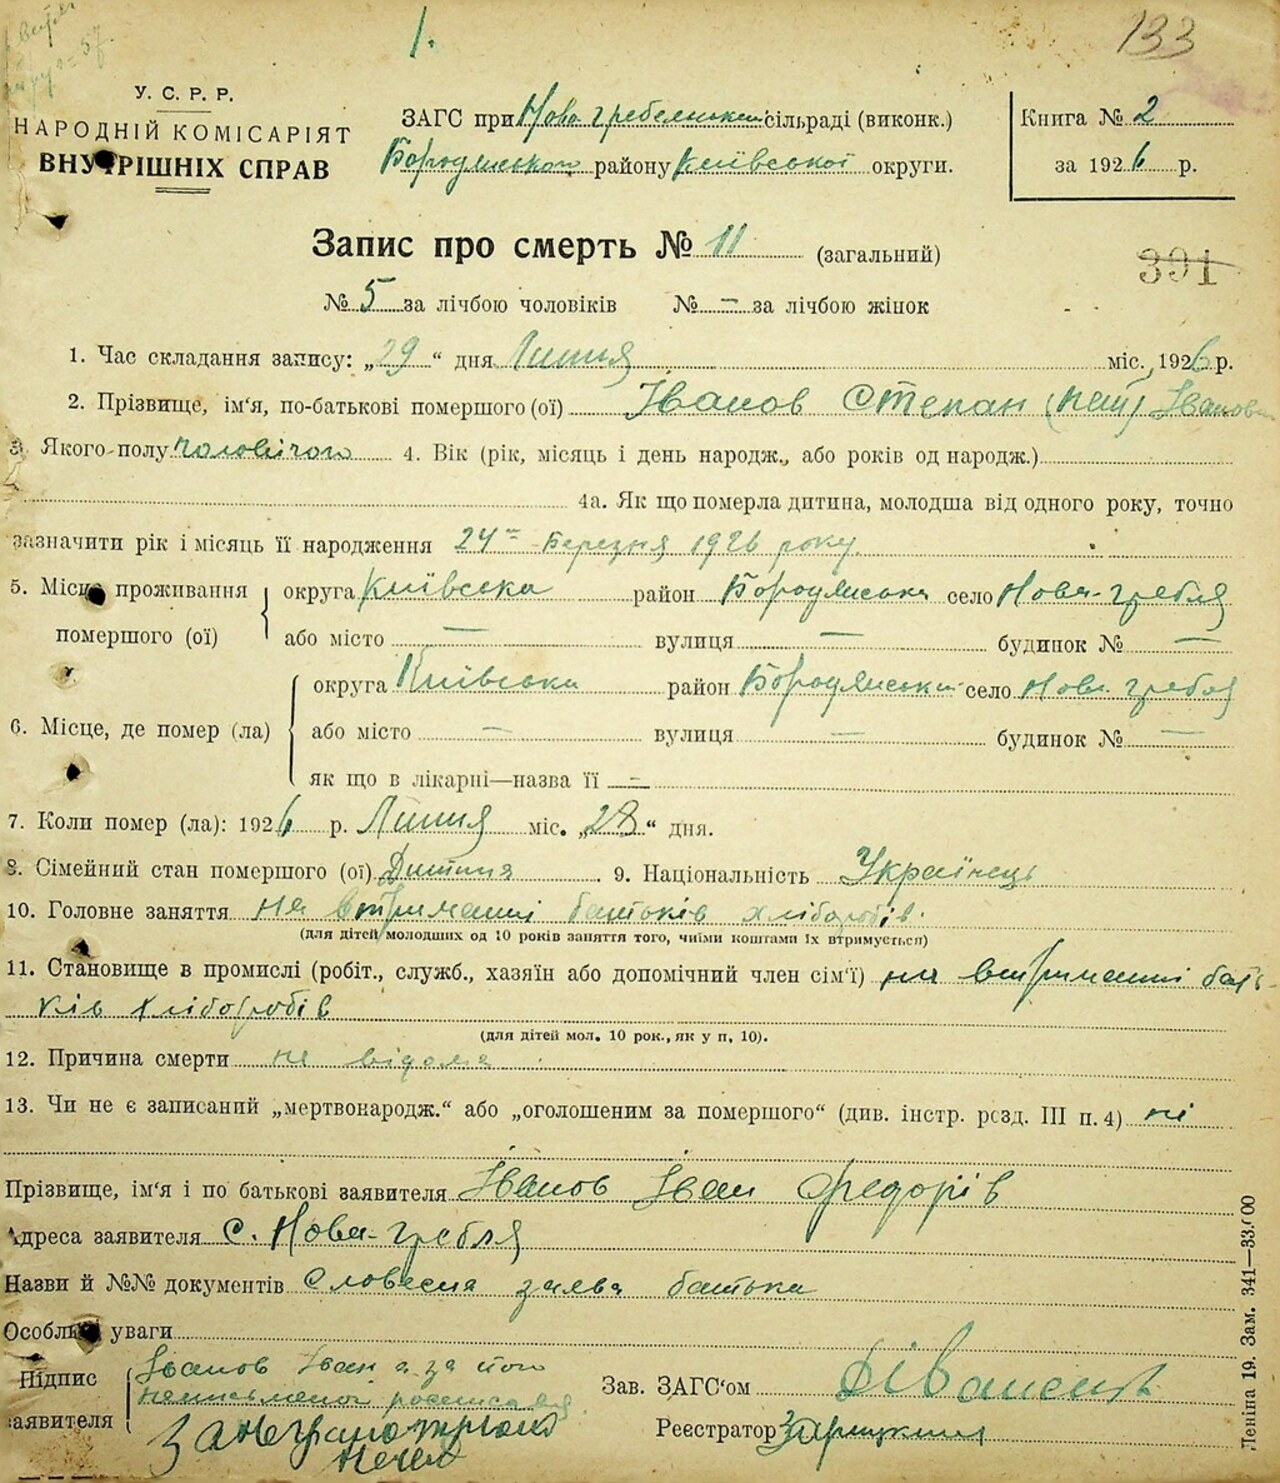 1.
133
У. С. Р. Р.
НАРОДНІЙ КОМІСАРІЯТ
ВНУТРІШНІХ СПРАВ
ЗАГС при Ново гребельській сільраді (виконк.)
Бородянського району Київської округи.
Книга № 2
за 1926 р.
Запис про смерть № 11 (загальний)
391
№ 5 за лічбою чоловіків № — за лічбою жінок
1. Час складання запису: „29“ дня Липня міс. 1926 р.
2. Прізвище, ім‘я, по-батькові помершого (ої) Іванов Степан Іванов
3. Якого полу чоловічого 4. Вік (рік, місяць і день народж., або років од народж.)
4а. Як що померла дитина, молодша від одного року, точно
зазначити рік і місяць її народження 24 Березня 1926 року
5. Місце проживання помершого (ої) округа Київська район Бородянська село Нова-гребля
або місто — вулиця — будинок № —
6. Місце, де помер (ла) округа Київська район Бородянська село Нова гребля
або місто — вулиця — будинок № —
як що в лікарні—назва її —
7. Коли помер (ла): 1926 р. Липня міс. „28“ дня.
8. Сімейний стан помершого (ої) Дитина 9. Національність Українець
10. Головне заняття на втриманні батьків хліборобів.
(для дітей молодших од 10 років заняття того, чиїми коштами їх втримується)
11. Становище в промислі (робіт., служб., хазяїн або допомічний член сім‘ї) на втриманні бать-
ків хліборобів
(для дітей мол. 10 рок., як у п. 10).
12. Причина смерти не відома
13. Чи не є записаний „мертвонародж.“ або „оголошеним за помершого“ (див. інстр. розд. III п. 4) ні
Прізвище, ім‘я і по батькові заявителя Іванов Іван Федорів
Адреса заявителя с. Нова-гребля
Назви й №№ документів Словесна заява батька
Особливі уваги
Підпис заявителя Іванов Іван а за його
неписьменого росписався
Зав. ЗАГС‘ом
Реєстратор Зарицький
Леніна 19. Зам. 341—33.000